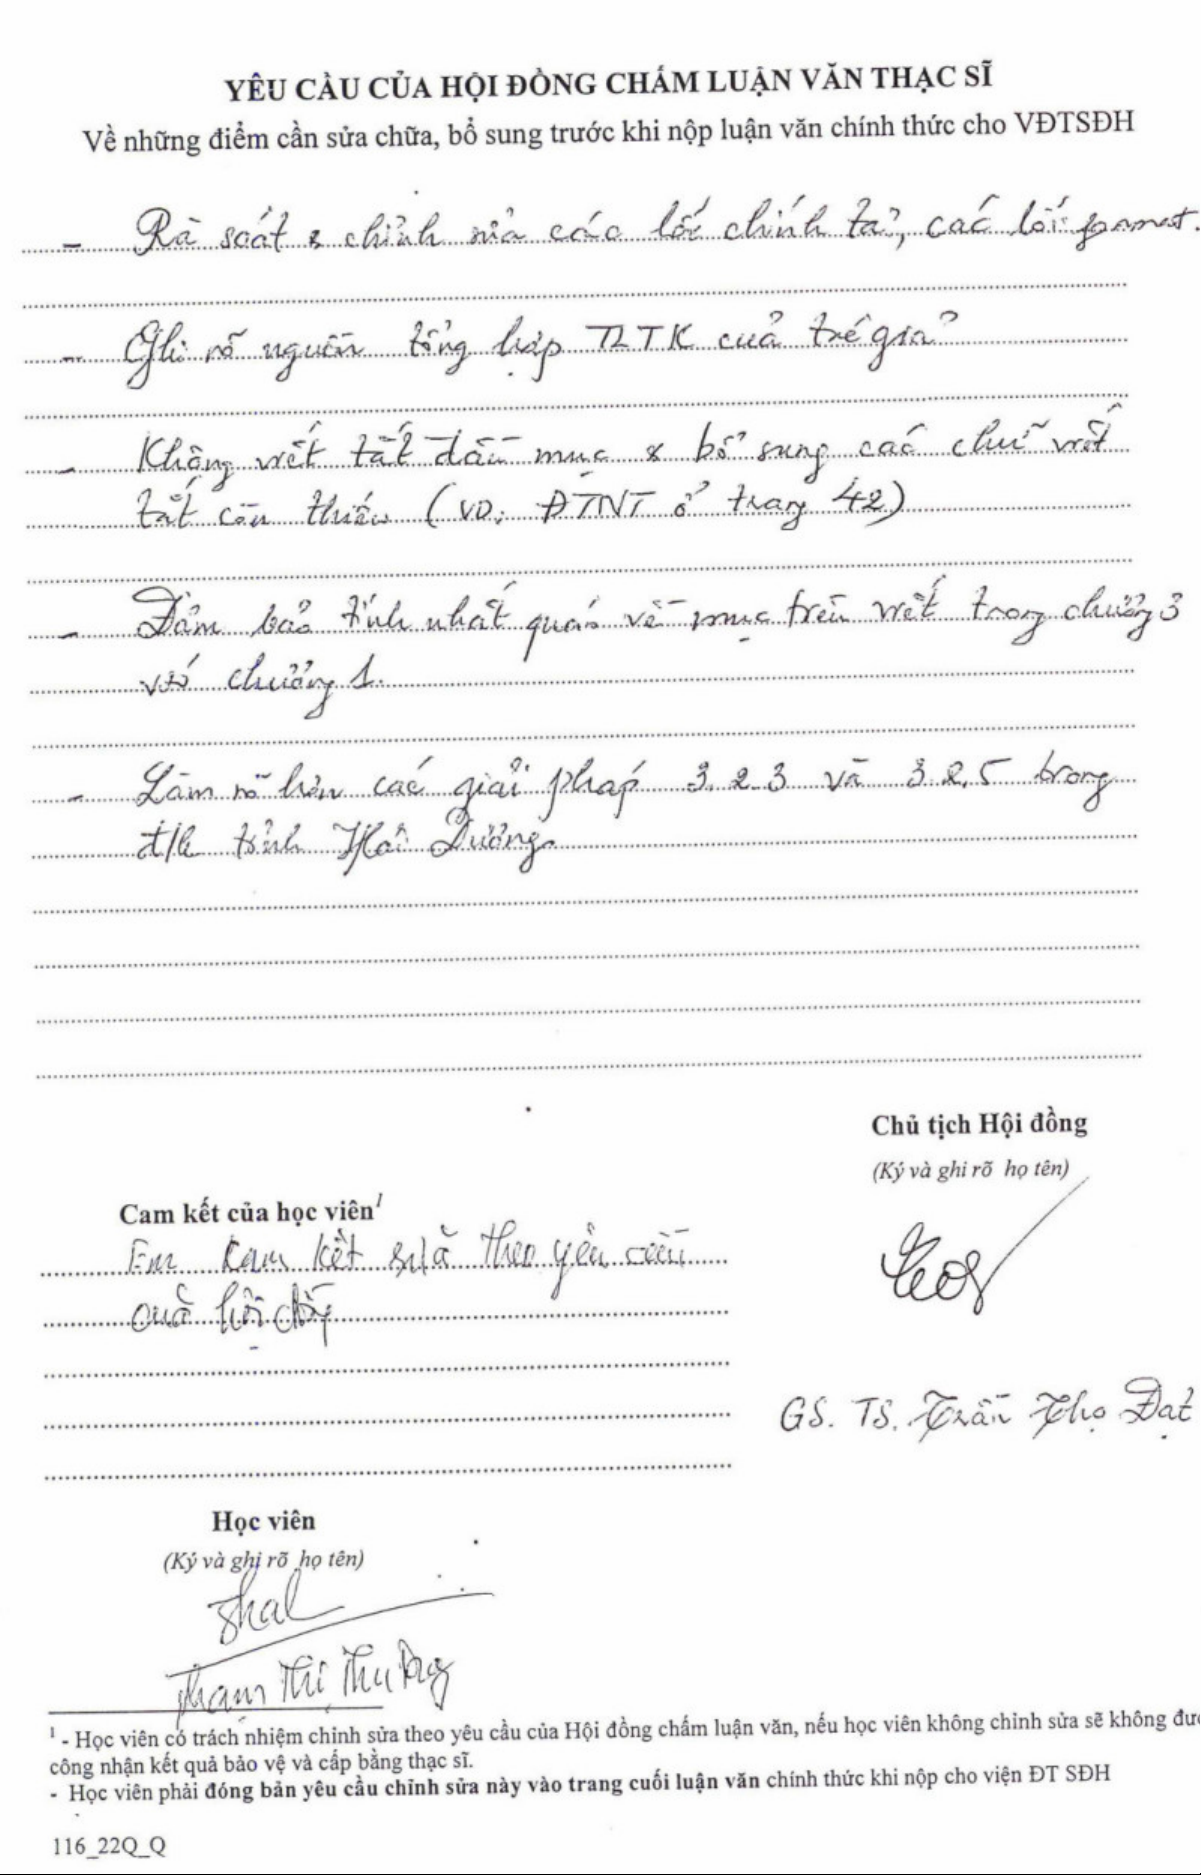 YÊU CẦU CỦA HỘI ĐỒNG CHẤM LUẬN VĂN THẠC SĨ
Về những điểm cần sửa chữa, bổ sung trước khi nộp luận văn chính thức cho VĐTSĐH
- Rà soát & chỉnh sửa các lỗi chính tả, các lỗi format.
- Ghi rõ nguồn tổng hợp TLTK của tác giả
- Không viết tắt đầu mục & bổ sung các chữ viết
tắt còn thiếu (VD: ĐTNT ở trang 42)
- Đảm bảo tính nhất quán về mục viết trong chương 3
với chương 1.
- Làm rõ hơn các giải pháp 3.2.3 và 3.2.5 trong
đ/k tỉnh Hải Dương.
Chủ tịch Hội đồng
(Ký và ghi rõ họ tên)
Cam kết của học viên¹
Em cam kết sửa theo yêu cầu
của hội đồng
GS. TS. Trần Thọ Đạt
Học viên
(Ký và ghi rõ họ tên)
Phạm Thị Thu
¹ - Học viên có trách nhiệm chỉnh sửa theo yêu cầu của Hội đồng chấm luận văn, nếu học viên không chỉnh sửa sẽ không đượ
công nhận kết quả bảo vệ và cấp bằng thạc sĩ.
- Học viên phải đóng bản yêu cầu chỉnh sửa này vào trang cuối luận văn chính thức khi nộp cho viện ĐT SĐH
116_22Q_Q